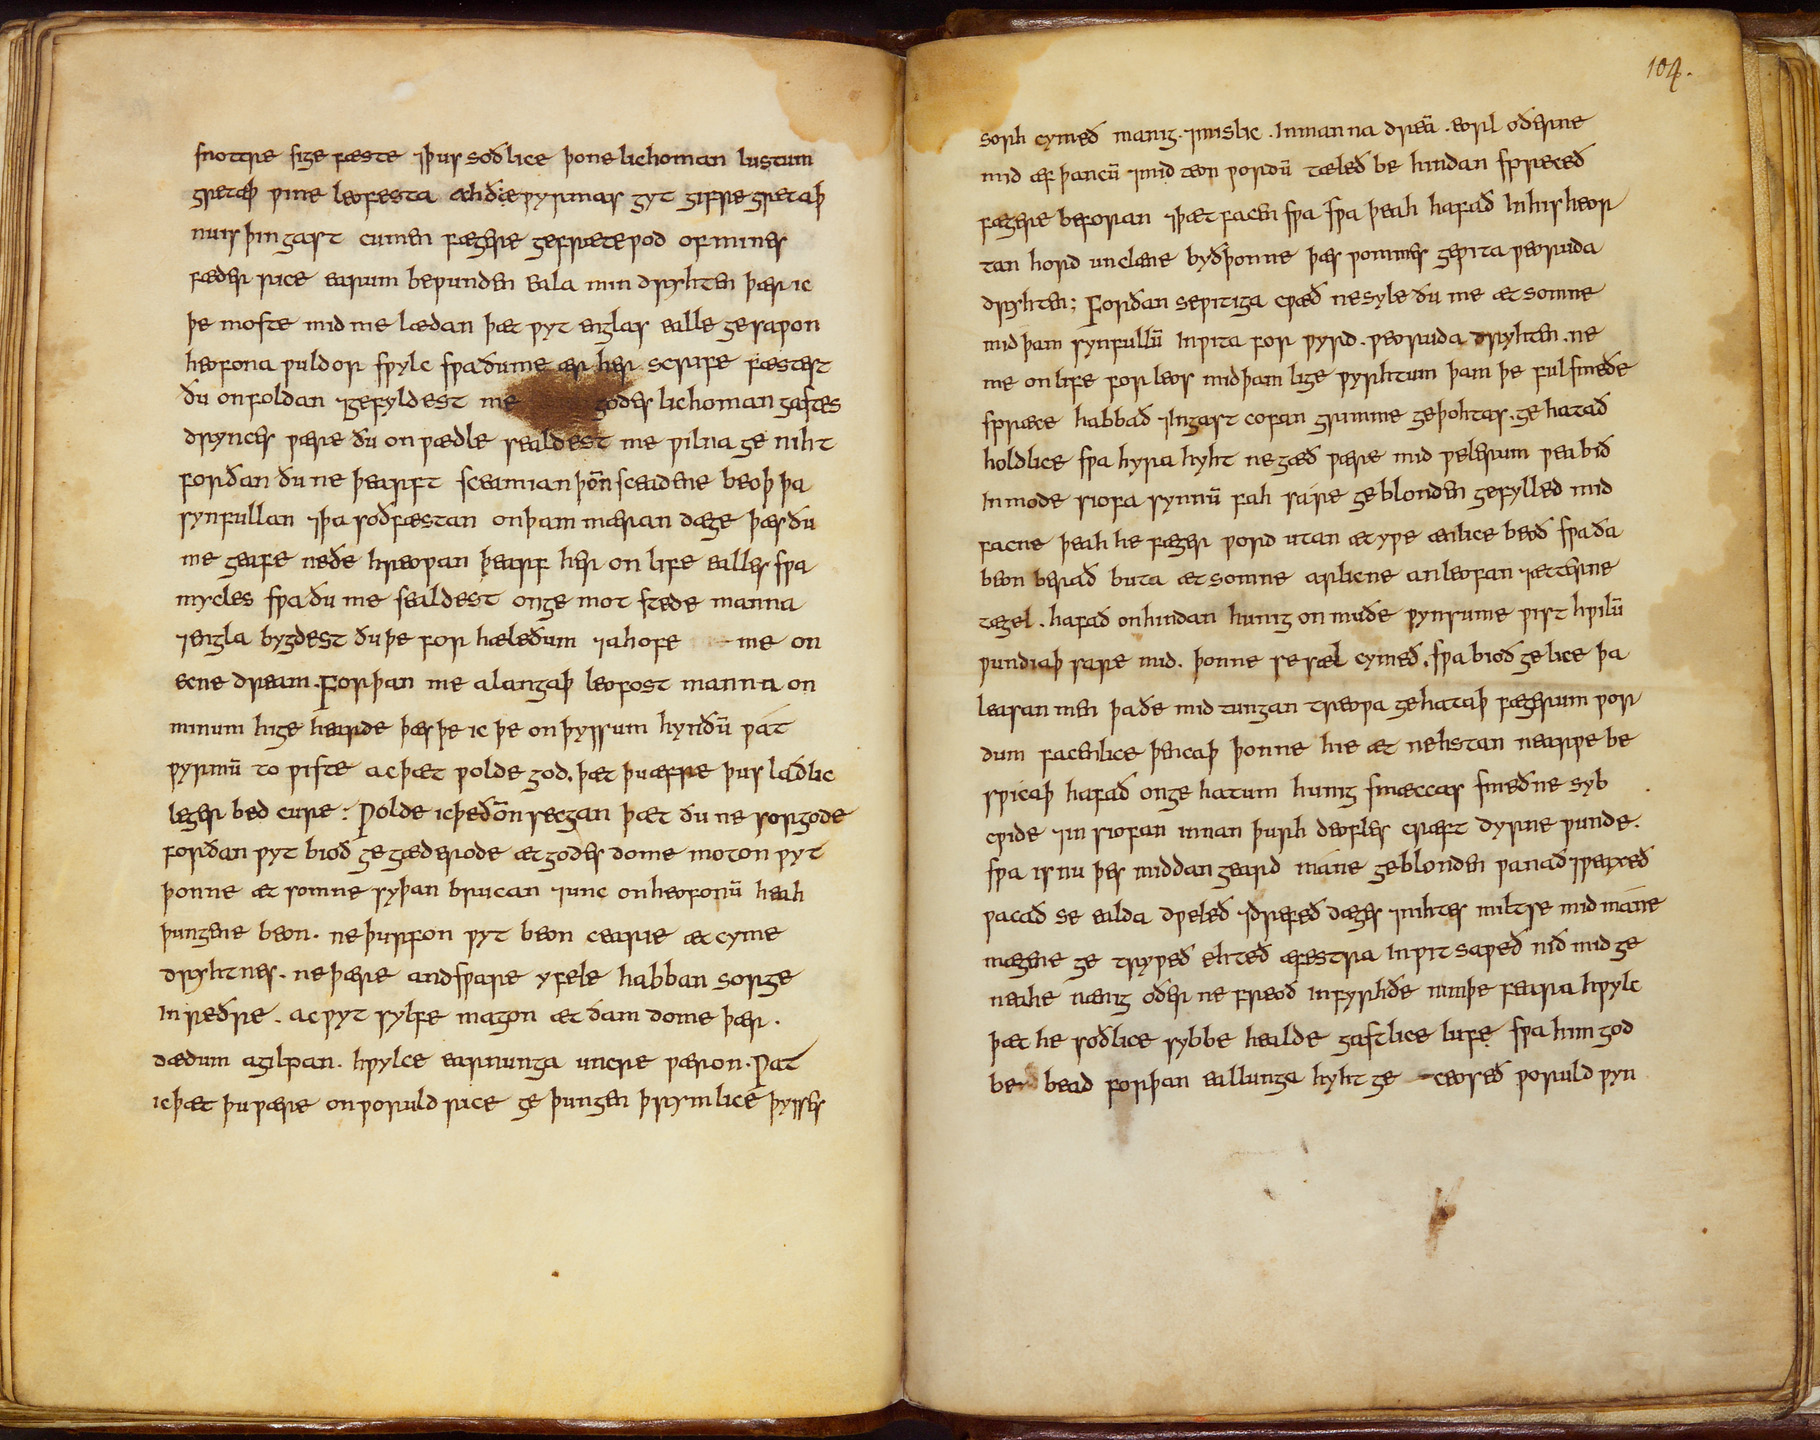 snottre sige fæste ⁊þus soðlice þone lichoman lustum
gretaþ wine leofesta ahðe wyrmas gyt gifre gretaþ
nu is þin gast cumen fægere gefrætewod of mines
fæder rice earum bewunden eala min dryhten þær ic
þe moste mid me lædan þæt wyt englas ealle gesawon
heofona wuldor swylc swa ðu me ær her. scrife fæstest
ðu on foldan ⁊gefyldest me godes lichoman gastes
drynces wære ðu on wædle sealdest me wilna ge niht
forðan ðu ne þearft sceamian þoñ sceadene beoþ þa
synfullan ⁊þa soðfæstan on þam mæran dæge þæs ðu
me geafe ne ðe hreowan þearf her on life ealles swa
mycles swa ðu me sealdest on ge mot stede manna
⁊engla bygdest ðu þe for hæleðum ⁊ahofe me on
ecne dream. Forþan me a langaþ leofost manna on
minum hige hearde þæs þe ic þe on þyssum hyndū wat
wyrmū to wiste ac þæt wolde god. þæt þu æfre þus ladlic
leger bed cure: Wolde ic þe ðoñ secgan þæt ðu ne sorgode
forðan wyt bioð ge gæderode æt godes dome moton wyt
þonne æt somne syþan brucan ⁊unc on heofonū heah
þungene beon. ne þurfon wyt beon cearie æt cyme
dryhtnes. ne þære andsware yfele habban sorge
in reðre. ac wyt sylfe magon æt ðam dome þær.
dædum agilpan. hwylce earnunga uncre wæron. Wat
ic þæt þu wære on woruld rice ge þungen þrymlice þysses
104.
sorh cymeð manig. ⁊mislic. In manna dreā. eorl oðerne
mid æf þancū ⁊mid teon wordū tæleð be hindan spreceð
fægere beforan ⁊þæt facen swa swa þeah hafað In his heor
tan hord unclæne byð þonne þæs wommes gewita weoruda
dryhten; Forðan se witiga cwæð ne syle ðu me æt somne
mid þam synfullū In wita for wyrd. weoruda dryhten. ne
me on life for leos mid þam lige wyrhtum þam þe ful smeðe
spræce habbað ⁊In gast cofan grimme geþohtas. ge hatað
holdlice swa hyra hyht ne gæð wære mid welerum wea bið
In mode siofa synnū fah sare ge blonden gefylled mid
facne þeah he fæger word utan æt ywe ænlice beoð swa ða
beon berað buta æt somne arlicne anleofan ⁊ætterne
tægel. hafað on hindan hunig on muðe wynsume wist hwilū
wundiaþ sare mid. þonne se sæl cymeð. swa bioð gelice þa
leasan men þa ðe mid tungan treowa gehataþ fægerum wor
dum facenlice þencaþ þonne hie æt nehstan nearwe be
swicaþ hafað on gehatum hunig smæccas smeðne syb
cwide ⁊in siofan innan þurh deofles cræft dyrne wunde.
swa is nu þes middan geard máne geblonden wanað ⁊weaxeð
wacað se ealda dweleð ⁊drefeð dæges ⁊nihtes miltse mid máne
mægene ge trypeð ehteð æfestra In wit saweð nið mid ge
neahe nænig oðer ne freoð In fyrhðe nimþe feara hwylc
þæt he soðlice sybbe healde gastlice lufe swa him god
be bead forþan eallunga hyht ge ceoseð woruld wyn